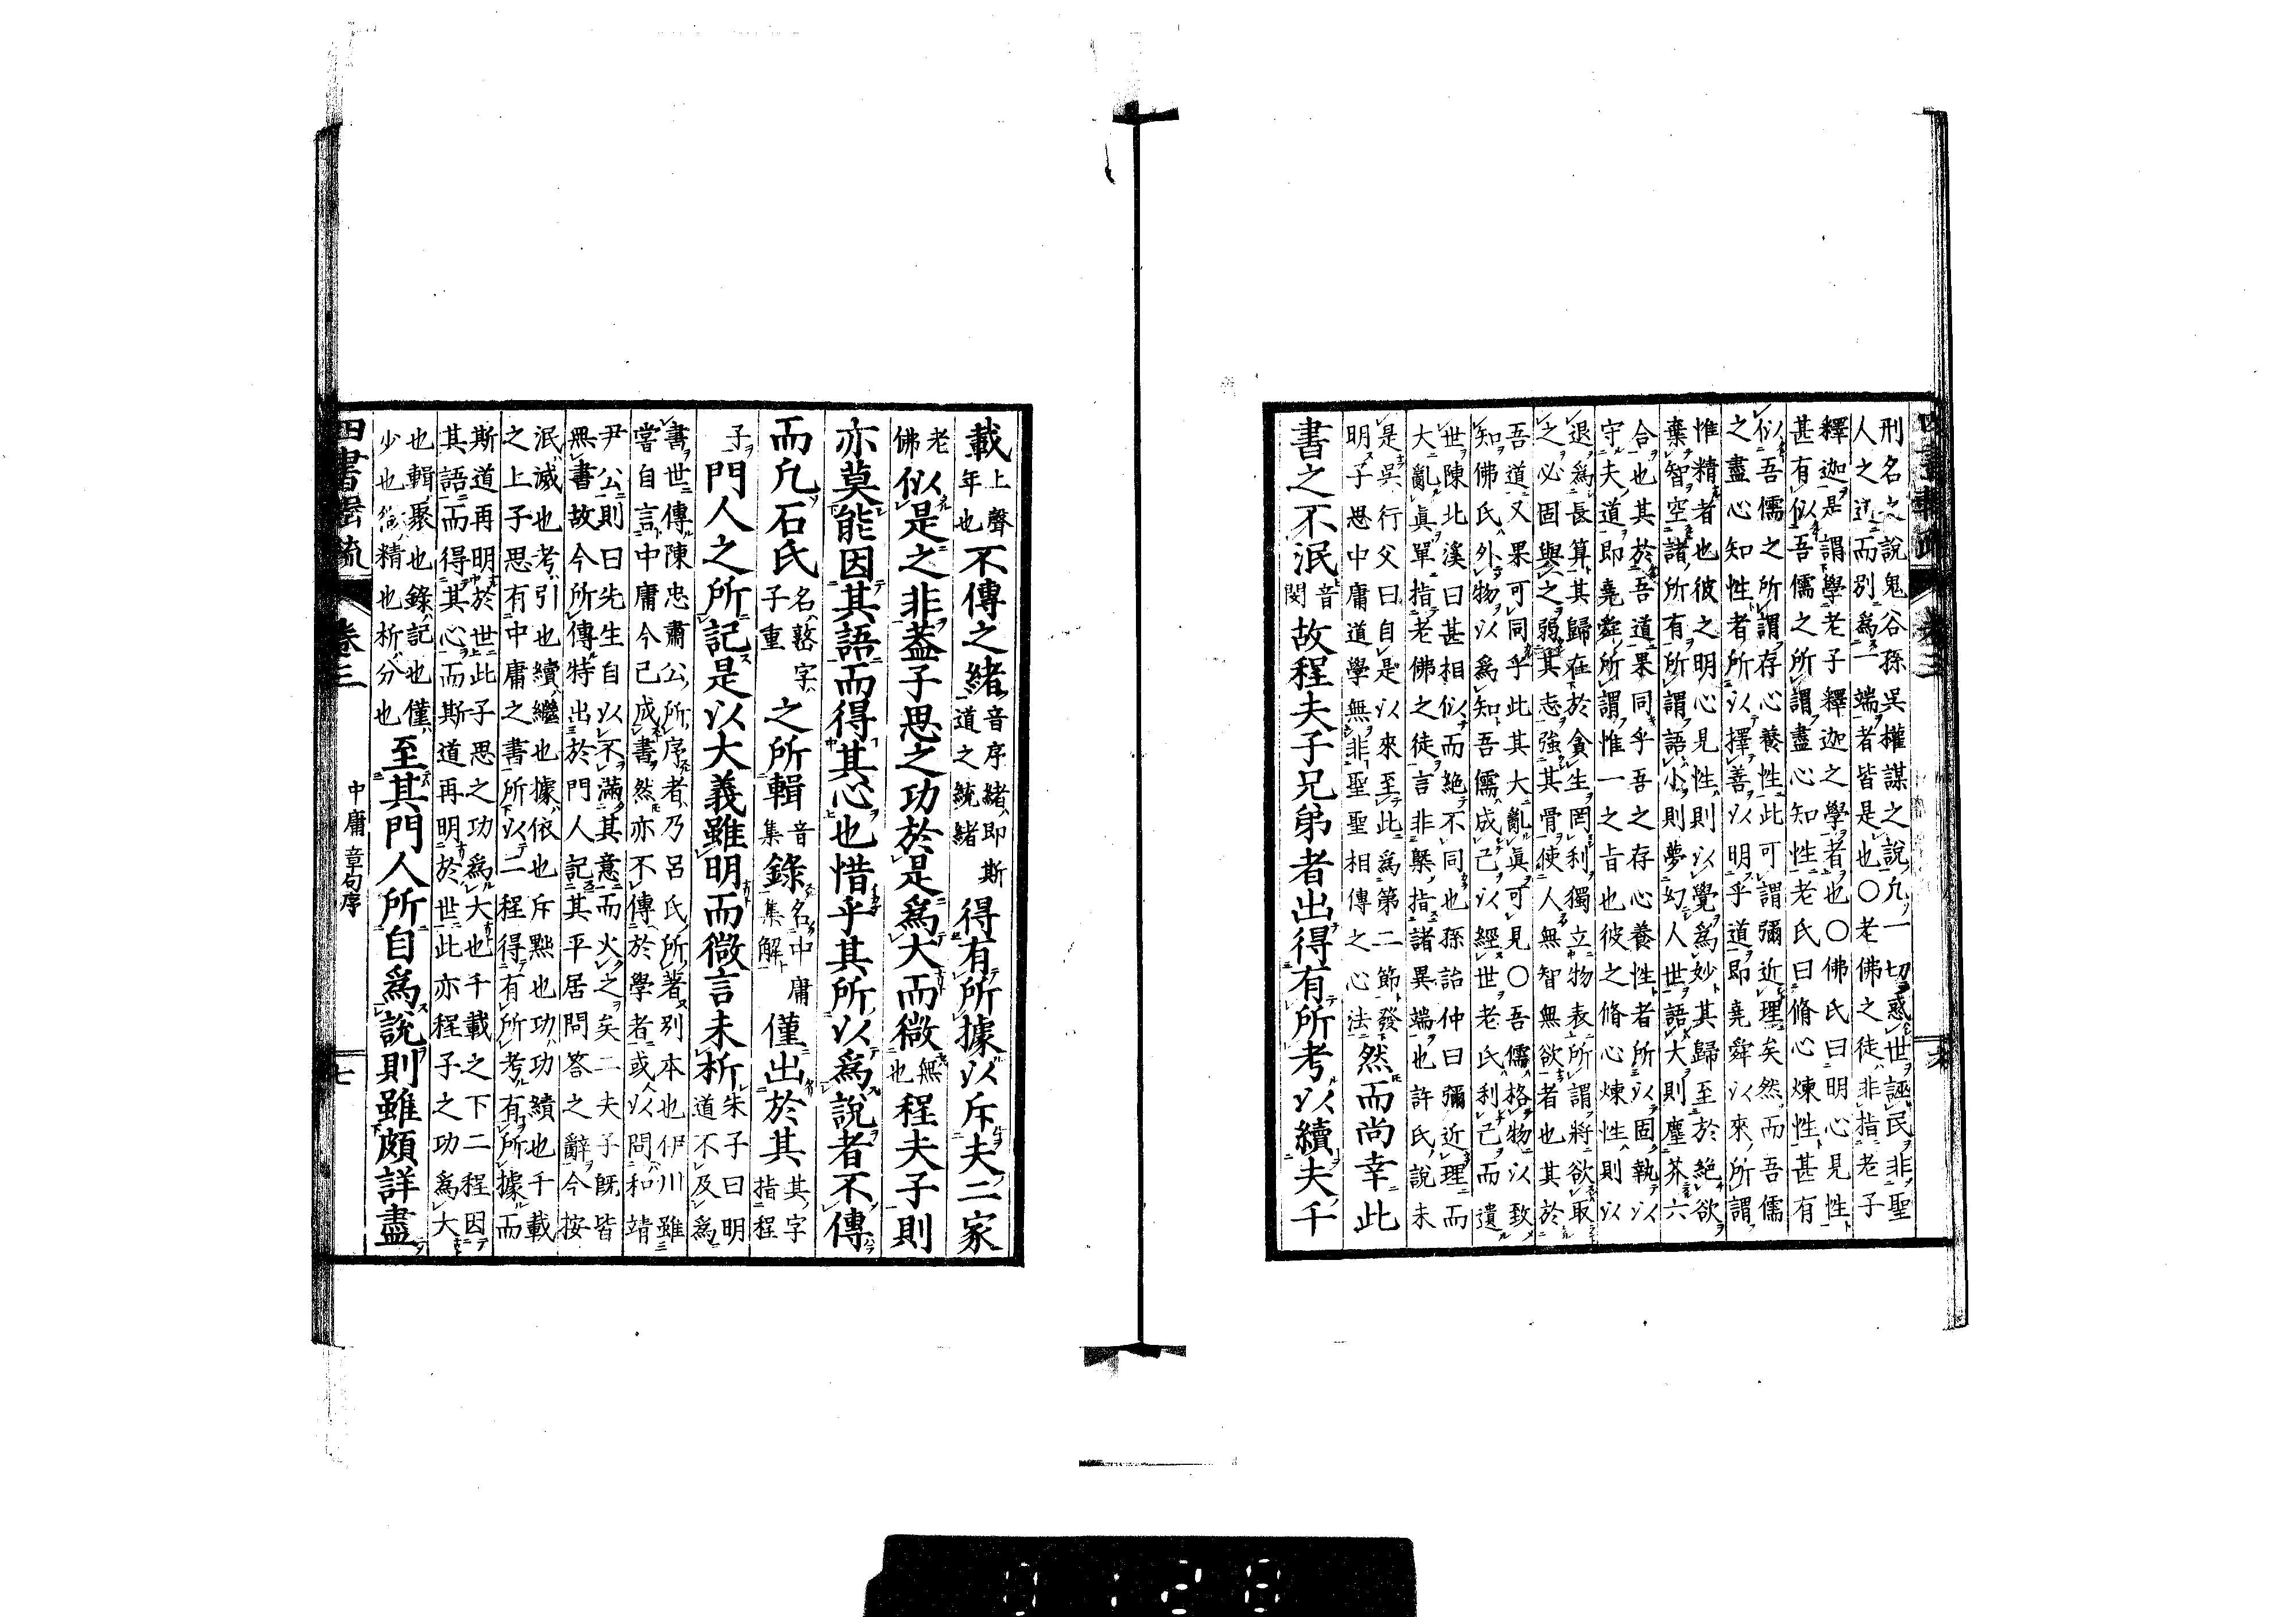 刑名之說鬼谷孫吳權謀之說凡一切惑世誣民非聖
人之道而別爲一端者皆是也〇老佛之徒非指老子
釋迦是謂學老子釋迦之學者也〇佛氏曰明心見性
甚有似吾儒之所謂盡心知性老氏曰脩心煉性甚有
似吾儒之所謂存心養性此可謂彌近理矣然而吾儒
之盡心知性者所以擇善以明乎道即堯舜以來所謂
惟精者也彼之明心見性則以覺爲妙其歸至於絶欲
棄智空諸所有所謂語小則夢幻人世語大則塵芥六
合也其於吾道果同乎吾之存心養性者所以固執以
守夫道即堯舜所謂惟一之旨也彼之脩心煉性則以
退爲長算其歸在於貪生罔利獨立物表所謂將欲取
之必固與之弱其志強其骨使人無智無欲者也其於
吾道又果可同乎此其大亂眞可見〇吾儒格物以致
知佛氏外物以爲知吾儒成己以經世老氏利己而遺
世陳北溪曰甚相似而絶不同也孫詒仲曰彌近理而
大亂眞單指老佛之徒言非槩指諸異端也許氏說未
是吳行父曰自是以來至此爲第二節發
明子思中庸道學無非聖聖相傳之心法然而尚幸此
書之不泯音閔故程夫子兄弟者出得有所考以續夫千
載上聲年也不傳之緒音序緒即斯道之統緒得有所據以斥夫二家
老佛似是之非蓋子思之功於是爲大而微無也程夫子則
亦莫能因其語而得其心也惜乎其所以爲說者不傳
而凡石氏名𡼖字子重之所輯音集錄名中庸集解僅出於其其字指程
子門人之所記是以大義雖明而微言未析朱子曰明道不及爲
書世傳陳忠肅公所序者乃呂氏所著別本也伊川雖
嘗自言中庸今己成書然亦不傳於學者或以問和靖
尹公則曰先生自以不滿其意而火之矣二夫子既皆
無書故今所傳特出於門人記其平居問答之辭今按
泯滅也考引也續繼也據依也斥黜也功功績也千載
之上子思有中庸之書所以二程得有所考有所據而
斯道再明於世此子思之功爲大也千載之下二程因
其語而得其心而斯道再明於世此亦程子之功爲大
也輯聚也錄記也僅
少也微精也析分也至其門人所自爲說則雖頗詳盡
四書 卷三 中庸章句序 七